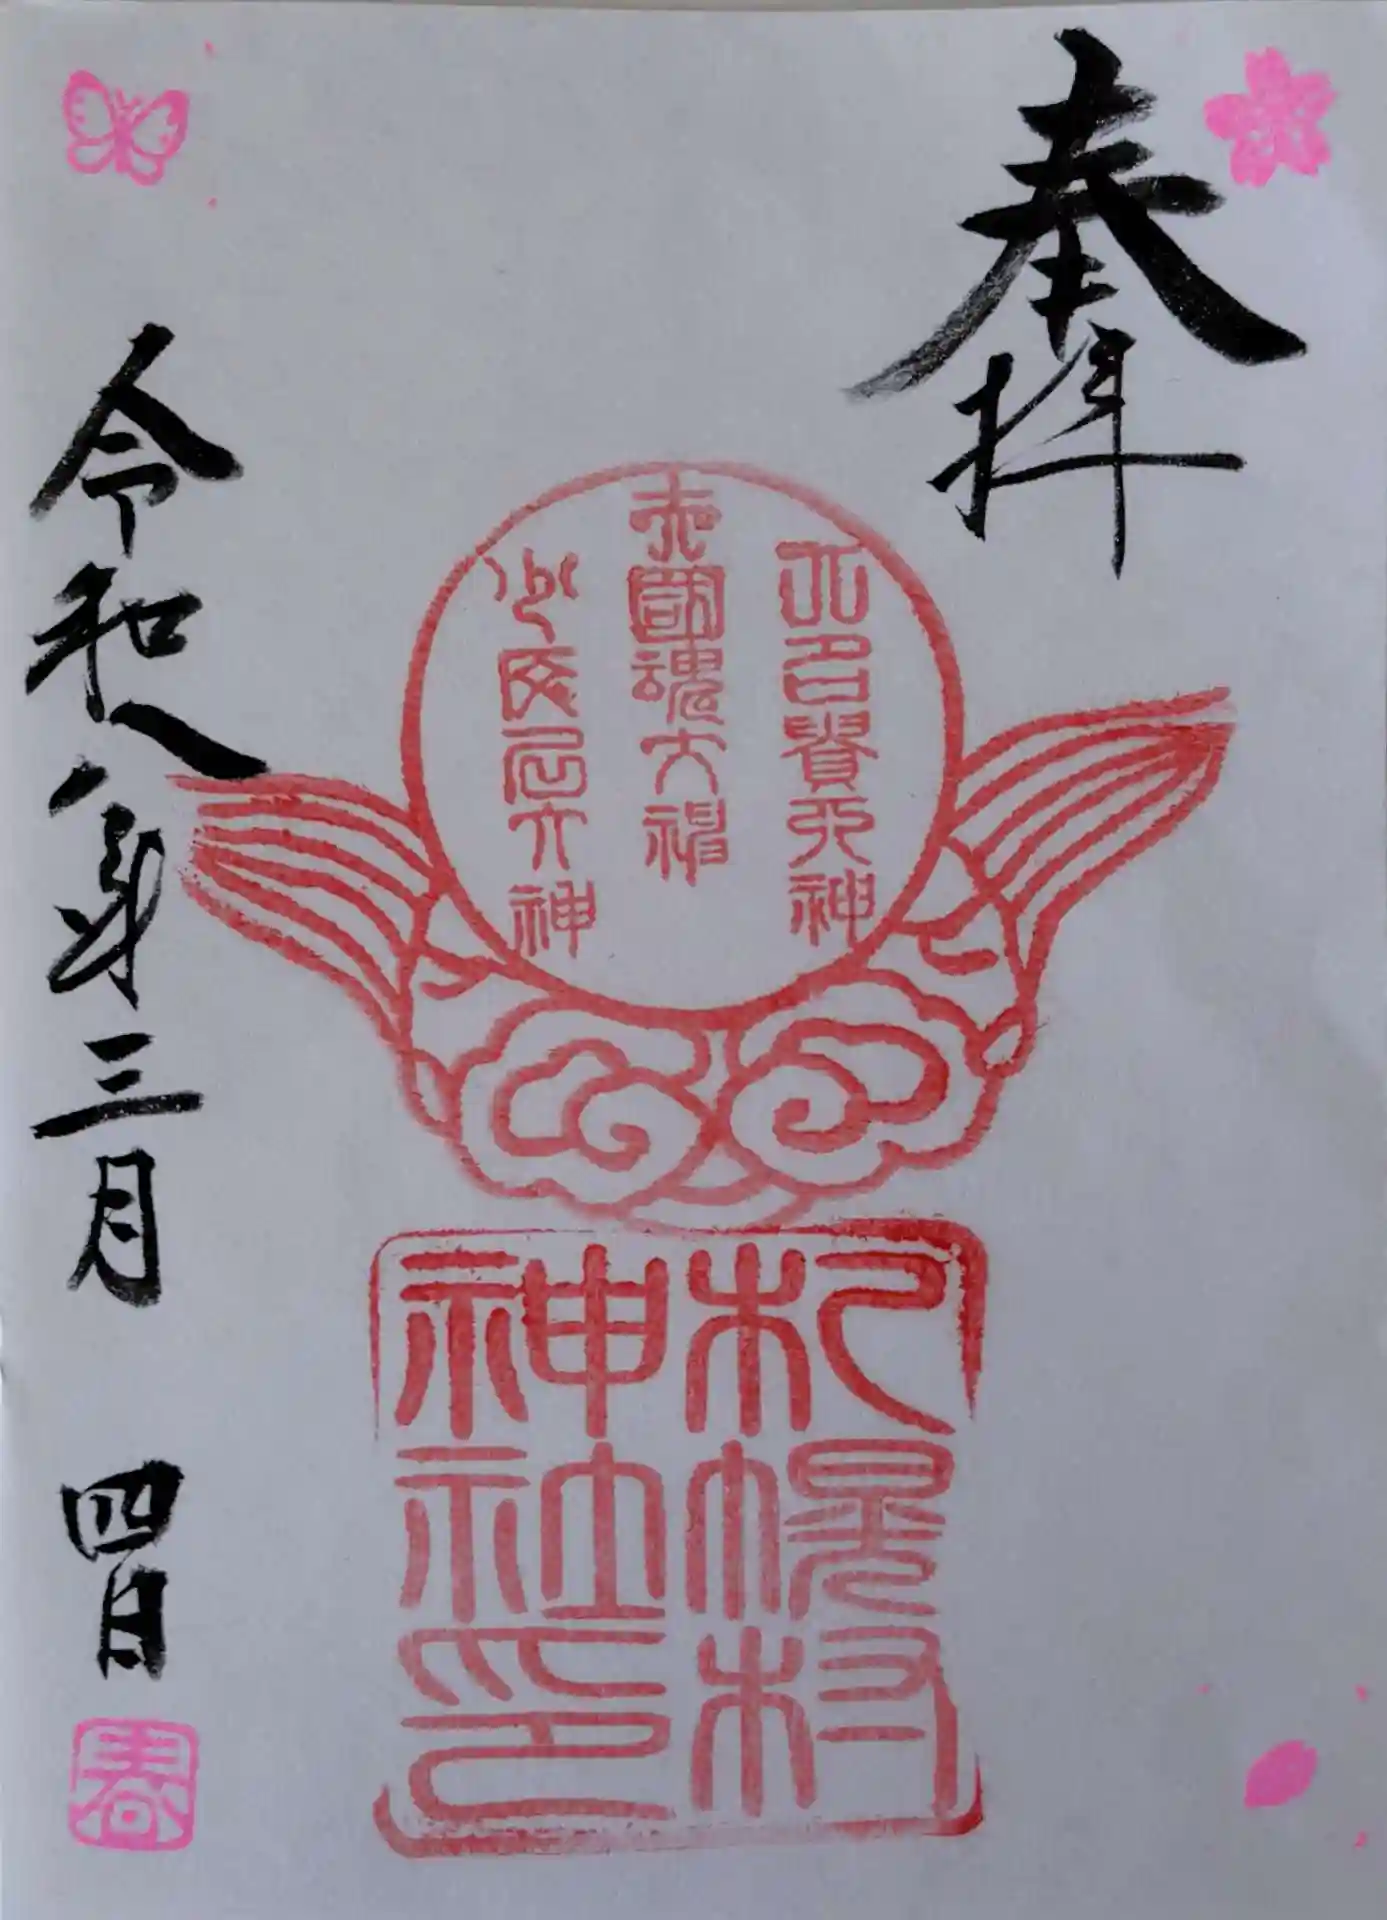 奉拝
大己貴大神
大國魂大神
少彦名大神
札幌村
神社印
令和八年三月四日
春